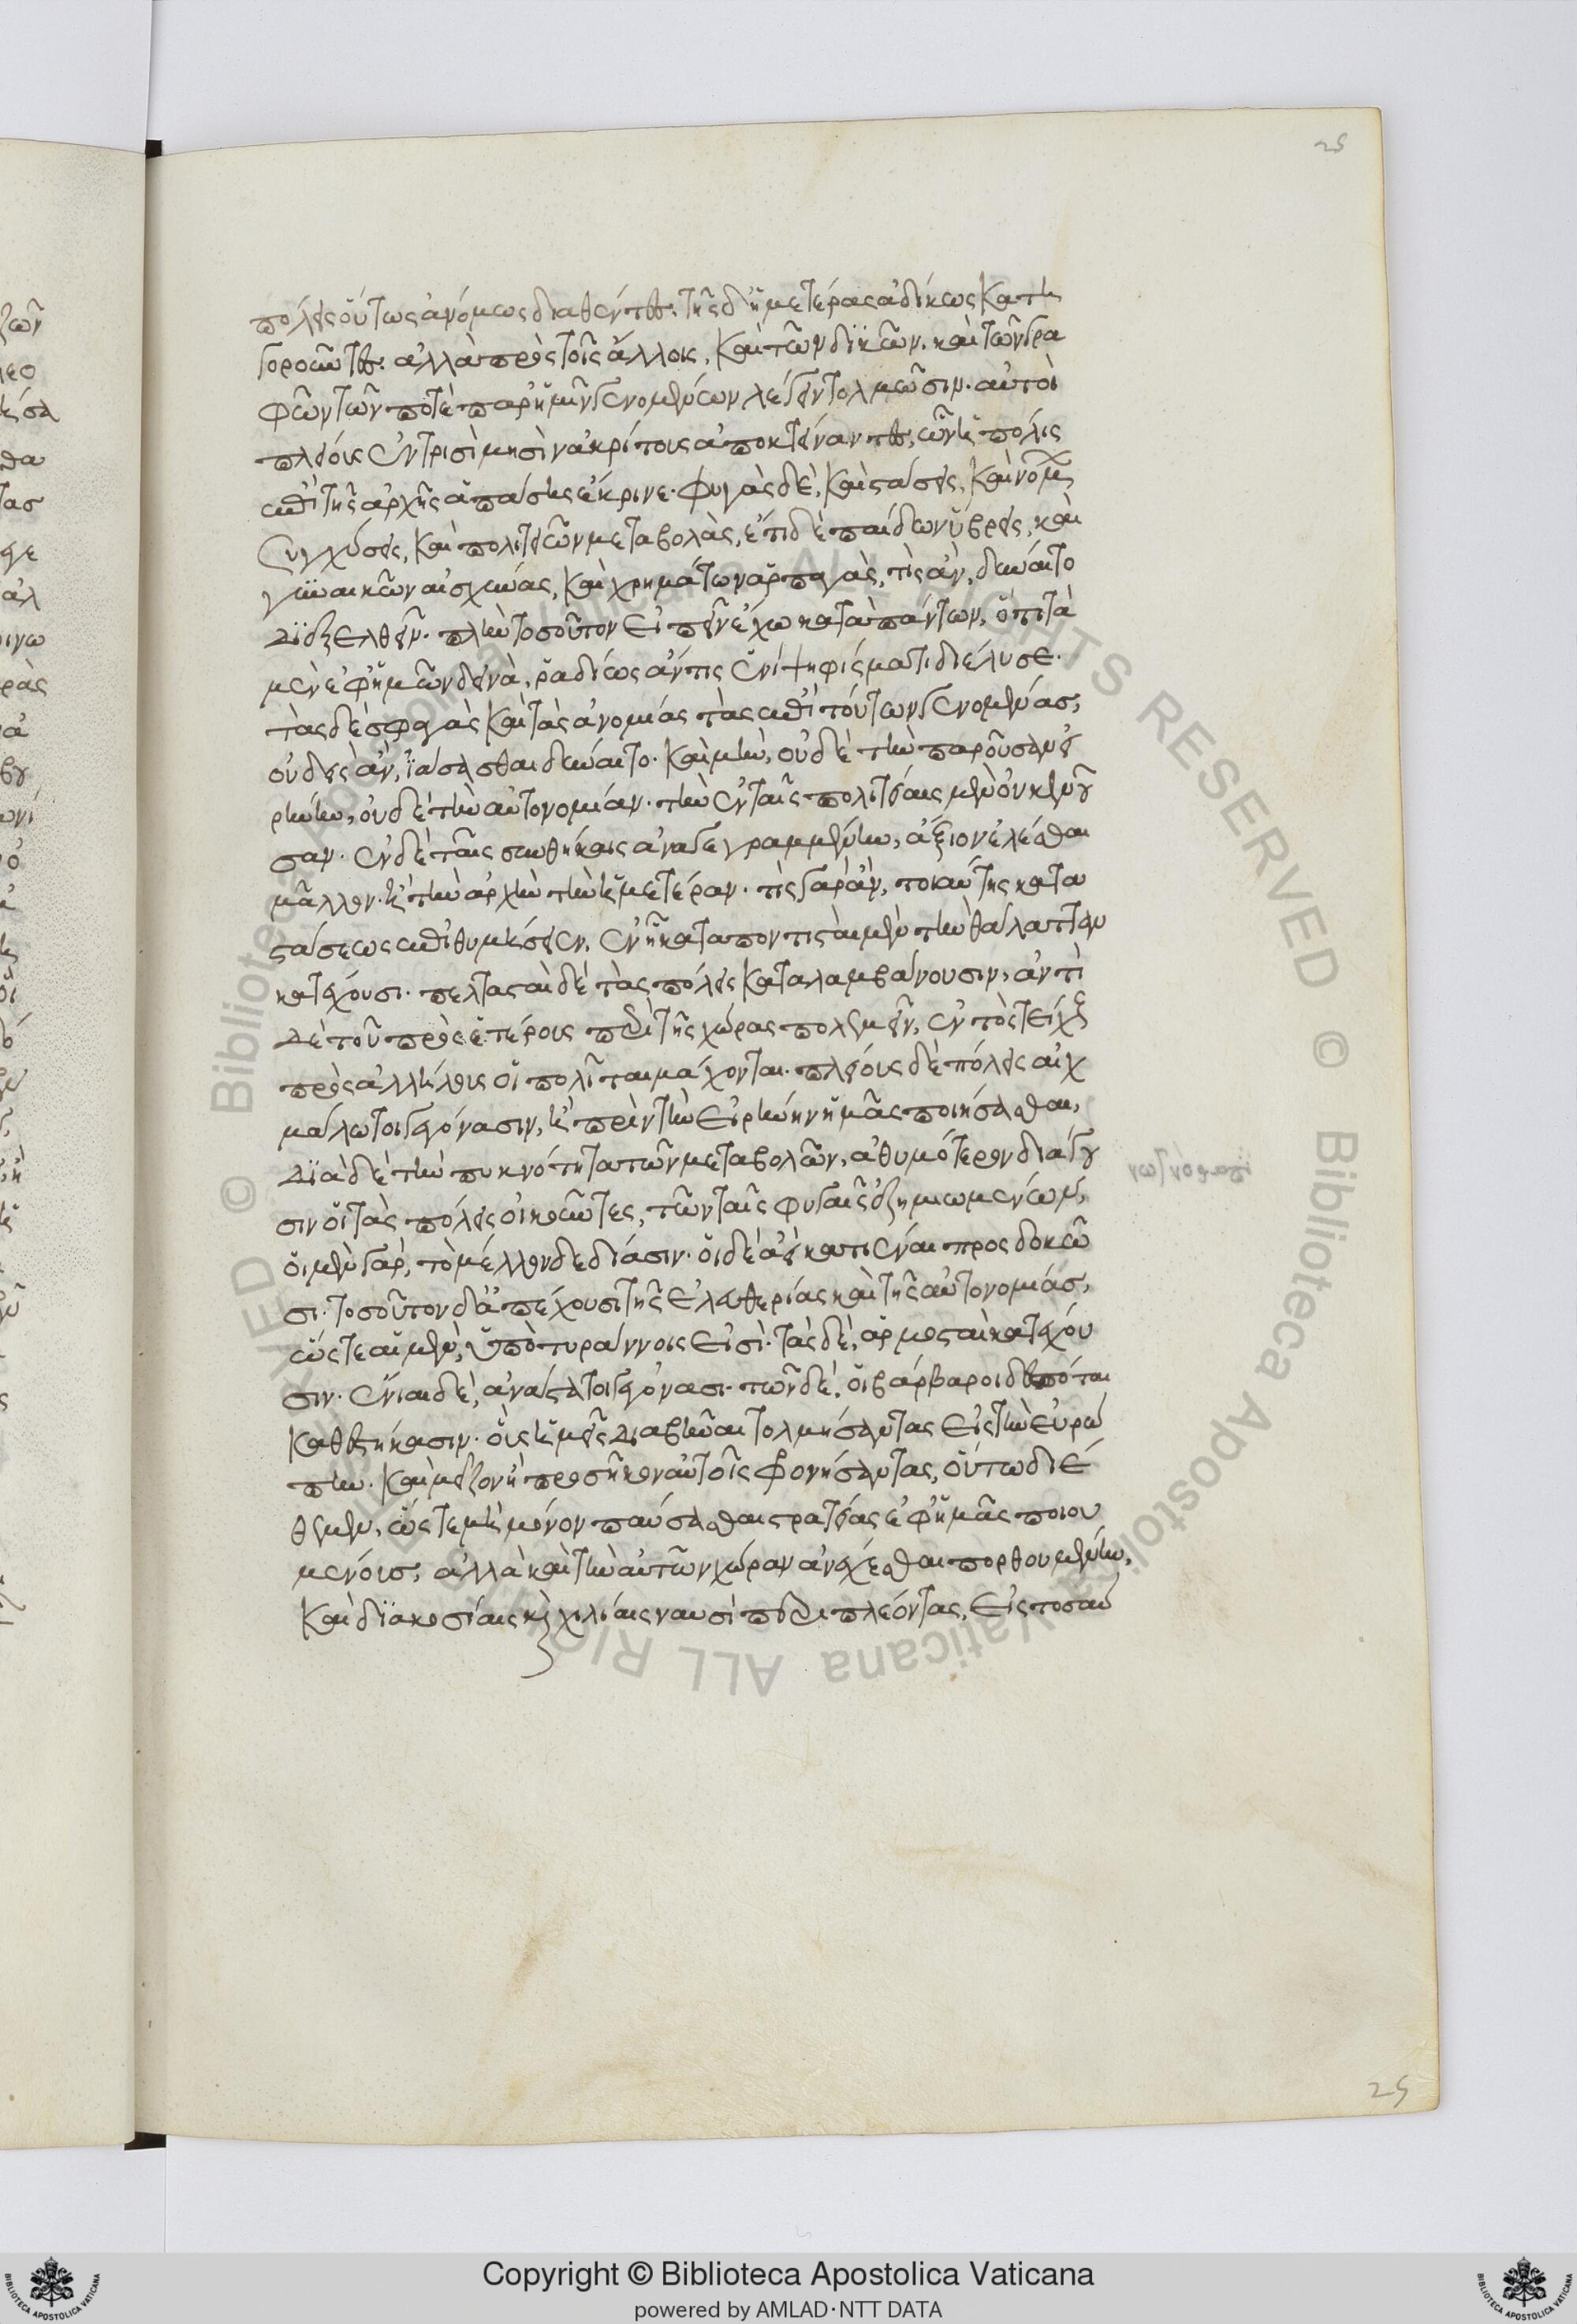 25
πόλεις οὕτως ἀνόμως διαθέντες. τῆς δ' ἡμετέρας ἀδίκως κατη
γοροῦντες. ἀλλὰ πρὸς τοῖς ἄλλοις, καὶ τῶν δϊκῶν. καὶ τῶν γρα
φῶν τῶν ποτὲ παρ' ἡμῖν γενομένων λέγειν τολμῶσιν. αὐτοὶ
πλείους ἐν τρισὶ μησὶν ἀκρίτους ἀποκτείναντες, ὧν ἡ πόλις
ἐπὶ τῆς ἀρχῆς ἁπάσης ἔκρινε. φυγὰς δὲ, καὶ στάσεις, καὶ νόμων
συγχύσεις, καὶ πολιτειῶν μεταβολὰς, ἔτι δὲ παίδων ὕβρεις, καὶ
γυναικῶν αἰσχύνας, καὶ χρημάτων ἁρπαγὰς, τίς ἂν, δύναιτο
διεξελθεῖν. πλὴν τοσοῦτον εἰπεῖν ἔχω κατὰ πάντων, ὅτι τὰ
μὲν ἐφ' ἡμῶν δεινὰ, ῥαδίως ἄν τις ἑνὶ ψηφίσματι διέλυσε.
τὰς δὲ σφαγὰς καὶ τὰς ἀνομίας τὰς ἐπὶ τούτων γενομένας,
οὐδεὶς ἂν, ἰάσασθαι δύναιτο. καὶ μὴν, οὐδὲ τὴν παροῦσαν εἰ
ρήνην, οὐδὲ τὴν αὐτονομίαν. τὴν ἐν ταῖς πολιτείαις μὲν οὐκ ἐνοῦ
σαν. ἐν δὲ ταῖς συνθήκαις ἀναγεγραμμένην, ἄξιον ἑλέσθαι
μᾶλλον. ἢ τὴν ἀρχὴν τὴν ἡμετέραν. τίς γὰρ ἂν, τοιαύτης κατα
στάσεως ἐπιθυμήσειεν, ἐν ᾗ καταποντισταὶ μὲν τὴν θάλατταν
κατέχουσι. πελτασταὶ δὲ τὰς πόλεις καταλαμβάνουσιν, ἀντὶ
δὲ τοῦ πρὸς ἑτέρους περὶ τῆς χώρας πολεμεῖν, ἐντὸς τείχους
πρὸς ἀλλήλους οἱ πολῖται μάχονται. πλείους δὲ πόλεις αἰχ
μάλωτοι γεγόνασιν, ἢ πρὶν τὴν εἰρήνην ἡμᾶς ποιήσασθαι,
διὰ δὲ τὴν πυκνότητα τῶν μεταβολῶν, ἀθυμότερον διάγου
σιν οἱ τὰς πόλεις οἰκοῦντες, τῶν ταῖς φυγαῖς ἐζημιωμένων,
οἱ μὲν γὰρ, τὸ μέλλον δεδίασιν. οἱ δὲ ἀεὶ κατιέναι προσδοκῶ
σι. τοσοῦτον δ' ἀπέχουσι τῆς ἐλευθερίας καὶ τῆς αὐτονομίας,
ὥστε αἱ μὲν, ὑπὸ τυράννοις εἰσὶ. τὰς δὲ, ἁρμοσταὶ κατέχου
σιν. ἔνιαι δὲ, ἀνάστατοι γεγόνασι. τῶν δὲ, οἱ βάρβαροι δεσπόται
καθεστήκασιν. οὓς ἡμεῖς διαβῆναι τολμήσαντας εἰς τὴν εὐρώ
πην. καὶ μεῖζον ἢ προσῆκον αὐτοῖς φρονήσαντας, οὕτω διέ
θεμεν, ὥστε μὴ μόνον παύσασθαι στρατείας ἐφ' ἡμᾶς ποιου
μένους, ἀλλὰ καὶ τὴν αὐτῶν χώραν ἀνέχεσθαι πορθουμένην,
καὶ διακοσίαις καὶ χιλίαις ναυσὶ περιπλέοντας, εἰς τοσαύ
25
Copyright © Biblioteca Apostolica Vaticana
powered by AMLAD·NTT DATA